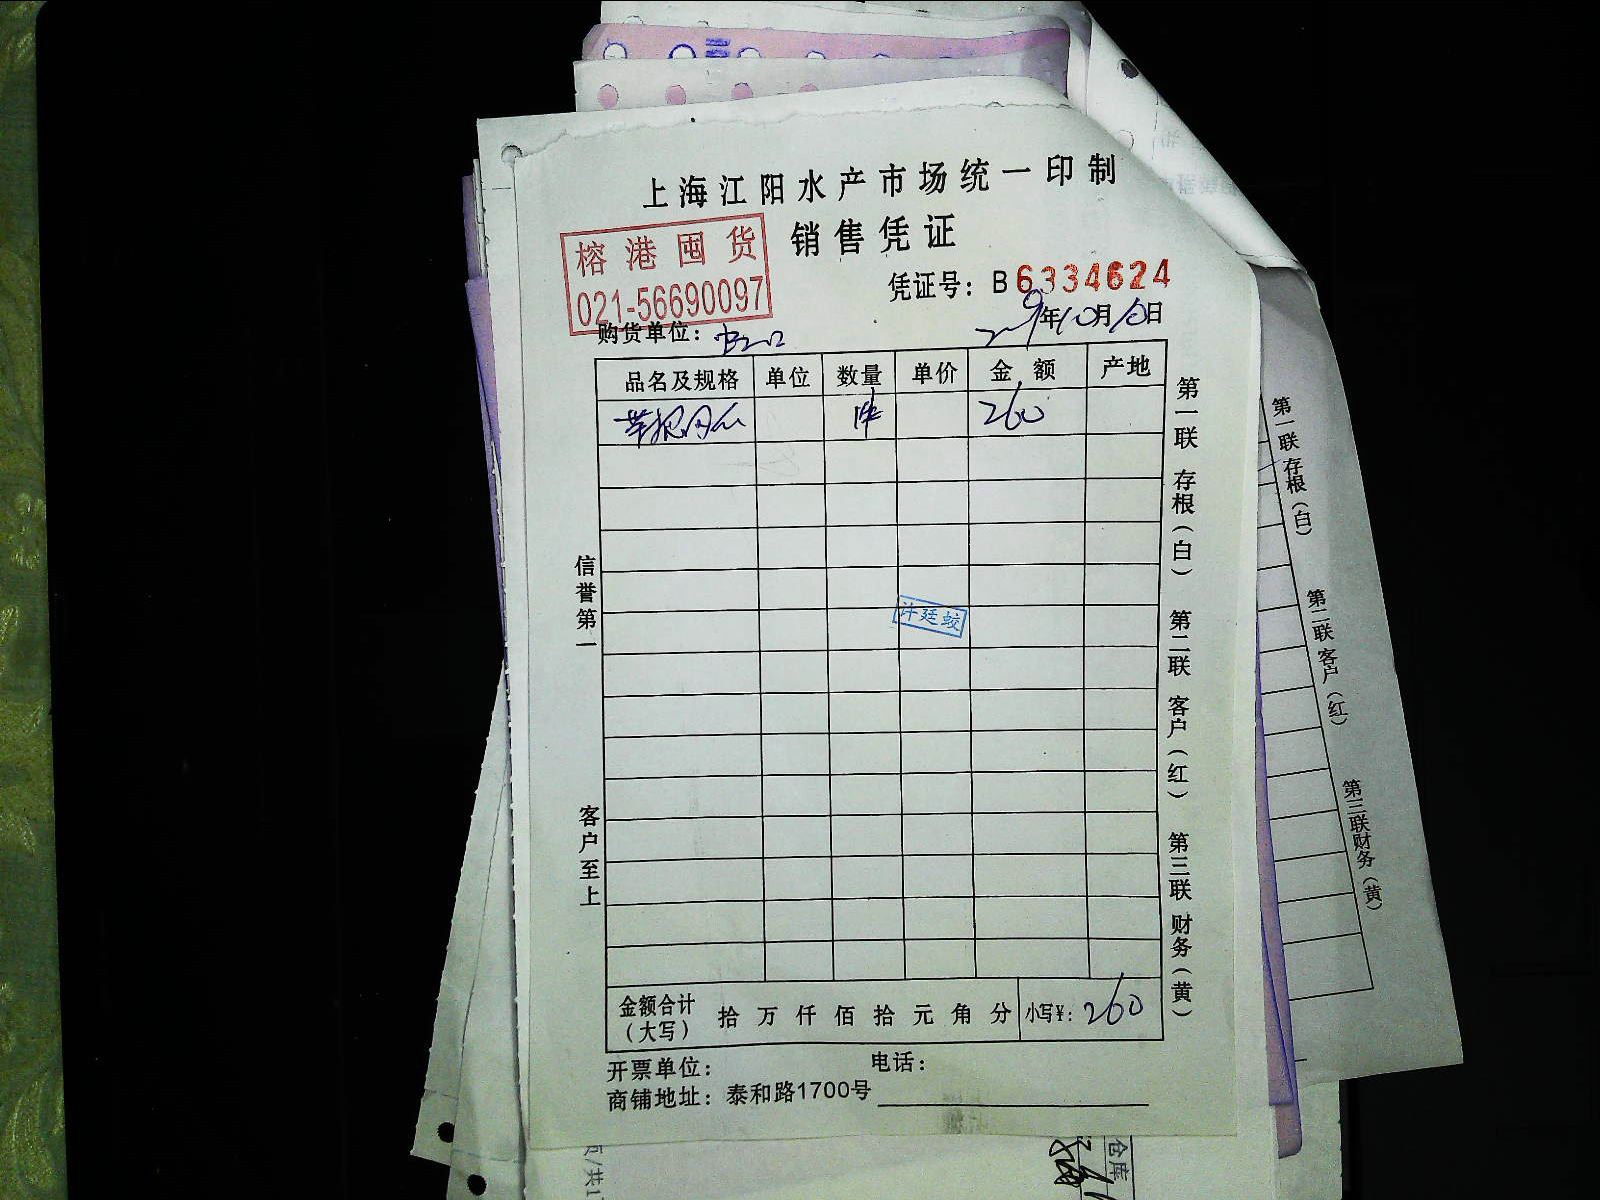 上海江阳水产市场统一印制
销售凭证
榕港囤货
021-56690097
凭证号：B6334624
年10月10日
购货单位：
品名及规格 单位 数量 单价 金额 产地
260
许廷蛟
信誉第一
客户至上
第一联 存根（白） 第二联 客户（红） 第三联 财务（黄）
金额合计（大写） 拾 万 仟 佰 拾 元 角 分 小写¥：260
开票单位： 电话：
商铺地址：泰和路1700号
第一联 存根（白） 第二联 客户（红） 第三联 财务（黄）
仓库